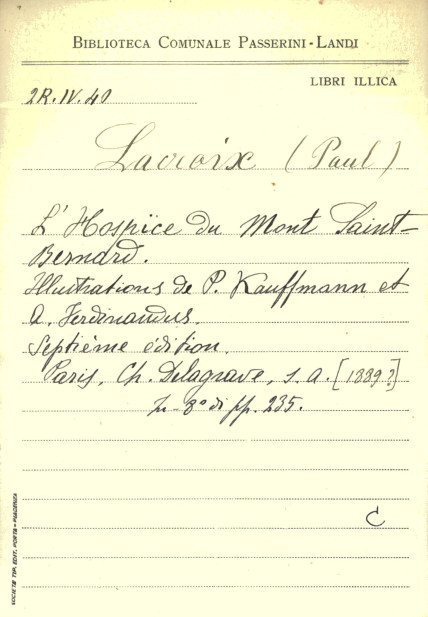 BIBLIOTECA COMUNALE PASSERINI-LANDI
LIBRI ILLICA
2R.IV.40
Lacroix (Paul)
L'Hospice du Mont Saint-
Bernard.
Illustrations de P. Kauffmann et
A. Ferdinandus.
Septième édition.
Paris, Ch. Delagrave, s. a. [1889?]
In-8° di pp. 235.
C
SOCIETÀ TIP. EDIT. PORTA - PIACENZA